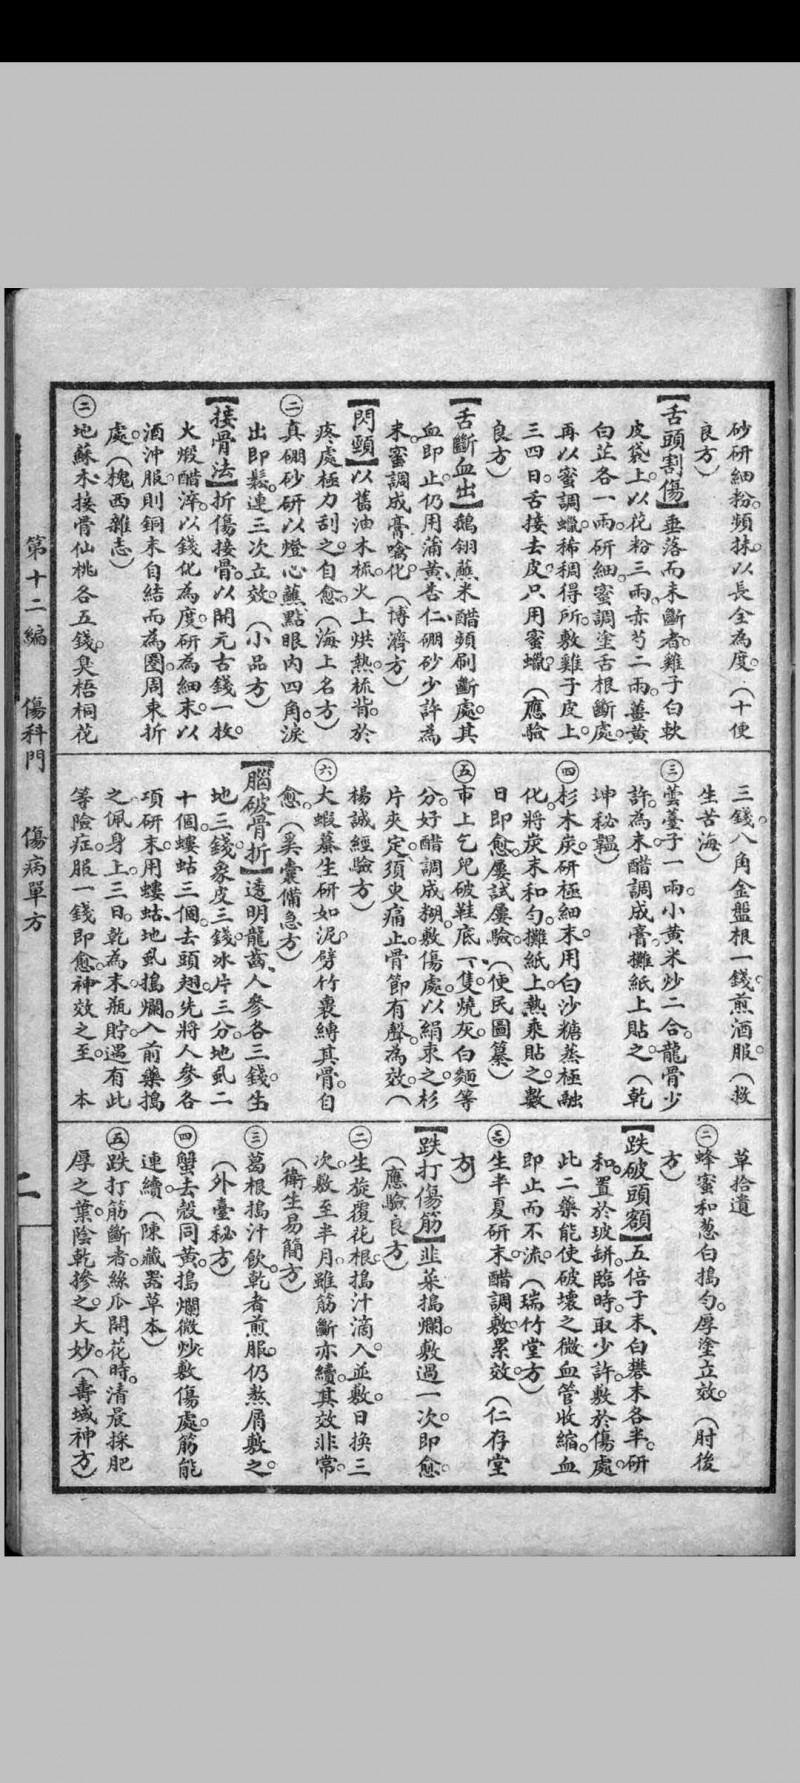 砂研細粉。頻抹。以長全為度。（十便
良方）
【舌頭割傷】垂落而未斷者。雞子白軟
皮袋上。以花粉三兩。赤芍二兩。薑黃
白芷各一兩。研細。蜜調塗舌根斷處。
再以蜜調蠟。稀稠得所。敷雞子皮上。
三四日。舌接去皮。只用蜜蠟。（應驗
良方）
【舌斷血出】鵝翎蘸米醋頻刷斷處。其
血即止。仍用蒲黃、杏仁、硼砂少許為
末。蜜調成膏噙化。（博濟方）
【閃頸】以舊油木梳。火上烘熱。梳背於
疼處極力刮之。自愈。（海上名方）
㊁真硼砂研。以燈心蘸點眼內四角。淚
出即鬆。連三次立效。（小品方）
【接骨法】折傷接骨。以開元古錢一枚。
火煅醋淬。以錢化為度。研為細末。以
酒沖服。則銅末自結而為圈。周束折
處。（槐西雜志）
㊁地蘇木、接骨仙桃各五錢。臭梧桐花
三錢。八角金盤根一錢。煎酒服。（救
生苦海）
㊂雲薹子一兩。小黃米炒二合。龍骨少
許。為末。醋調成膏。攤紙上貼之。（乾
坤秘韞）
㊃杉木炭。研極細末。用白沙糖蒸極融
化。將炭末和勻。攤紙上。熱乘貼之。數
日即愈。屢試屢驗。（便民圖纂）
㊄市上乞兒破鞋底一隻。燒灰。白麵等
分。好醋調成糊。敷傷處。以絹束之。杉
片夾定。須臾痛止。骨節有聲。為效。（
楊誠經驗方）
㊅大蝦蟇生研如泥。劈竹裹縛其骨。自
愈。（奚囊備急方）
【腦破骨折】透明龍齒、人參各三錢。生
地三錢。象皮三錢。冰片三分。地虱二
十個。螻蛄三個。去頭翅。先將人參各
項研末。用螻蛄、地虱搗爛。入前藥搗
之。佩身上三日。乾為末。瓶貯。遇有此
等險症。服一錢即愈。神效之至。 本
草拾遺
㊁蜂蜜和葱白搗勻。厚塗立效。（肘後
方）
【跌破頭額】五倍子末、白礬末各半。研
和。置於玻缾。臨時。取少許。敷於傷處。
此二藥能使破壞之微血管收縮。血
即止而不流。（瑞竹堂方）
㊁生半夏研末。醋調敷。累效。（仁存堂
方）
【跌打傷筋】韭菜搗爛。敷過一次即愈。
（應驗良方）
㊁生旋覆花根。搗汁滴入。並敷。日換三
次。敷至半月。雖筋斷亦續。其效非常。
（衛生易簡方）
㊂葛根搗汁飲。乾者煎服。仍熬屑敷之。
（外臺秘方）
㊃蟹去殼同黃。搗爛微炒。敷傷處。筋能
連續。（陳藏器草本）
㊄跌打筋斷者。絲瓜開花時。清晨採肥
厚之葉。陰乾摻之。大妙。（壽域神方）
第十二編　傷科門　傷病單方
二